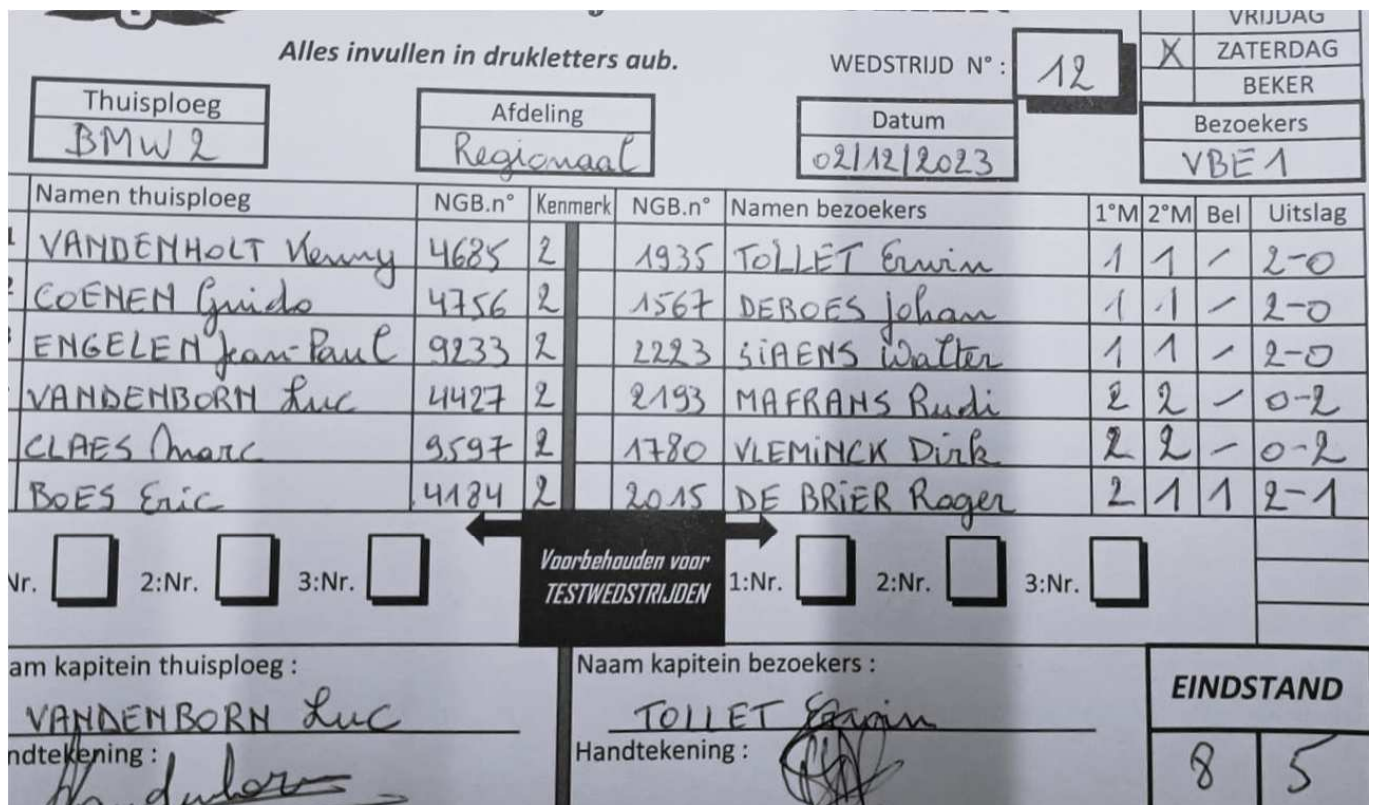 VRIJDAG
Alles invullen in drukletters aub.
WEDSTRIJD N° : 12
X ZATERDAG
BEKER
Thuisploeg
BMW 2
Afdeling
Regionaal
Datum
02/12/2023
Bezoekers
VBE 1
Namen thuisploeg NGB.n° Kenmerk NGB.n° Namen bezoekers 1°M 2°M Bel Uitslag
VANDENHOLT Kenny 4685 2 1935 TOLLET Erwin 1 1 - 2-0
COENEN Guido 4756 2 1567 DEBOES Johan 1 1 - 2-0
ENGELEN Jean-Paul 9233 2 2223 SiAENS Walter 1 1 - 2-0
VANDENBORN Luc 4427 2 2193 MAFRANS Rudi 2 2 - 0-2
CLAES Marc 9597 2 1780 VLEMiNCK Dirk 2 2 - 0-2
BOES Eric 4184 2 2015 DE BRiER Roger 2 1 1 2-1
Nr. 2:Nr. 3:Nr. Voorbehouden voor TESTWEDSTRIJDEN 1:Nr. 2:Nr. 3:Nr.
am kapitein thuisploeg : Naam kapitein bezoekers :
VANDENBORN Luc TOLLET Erwin
ndtekening : Handtekening :
EINDSTAND
8 5